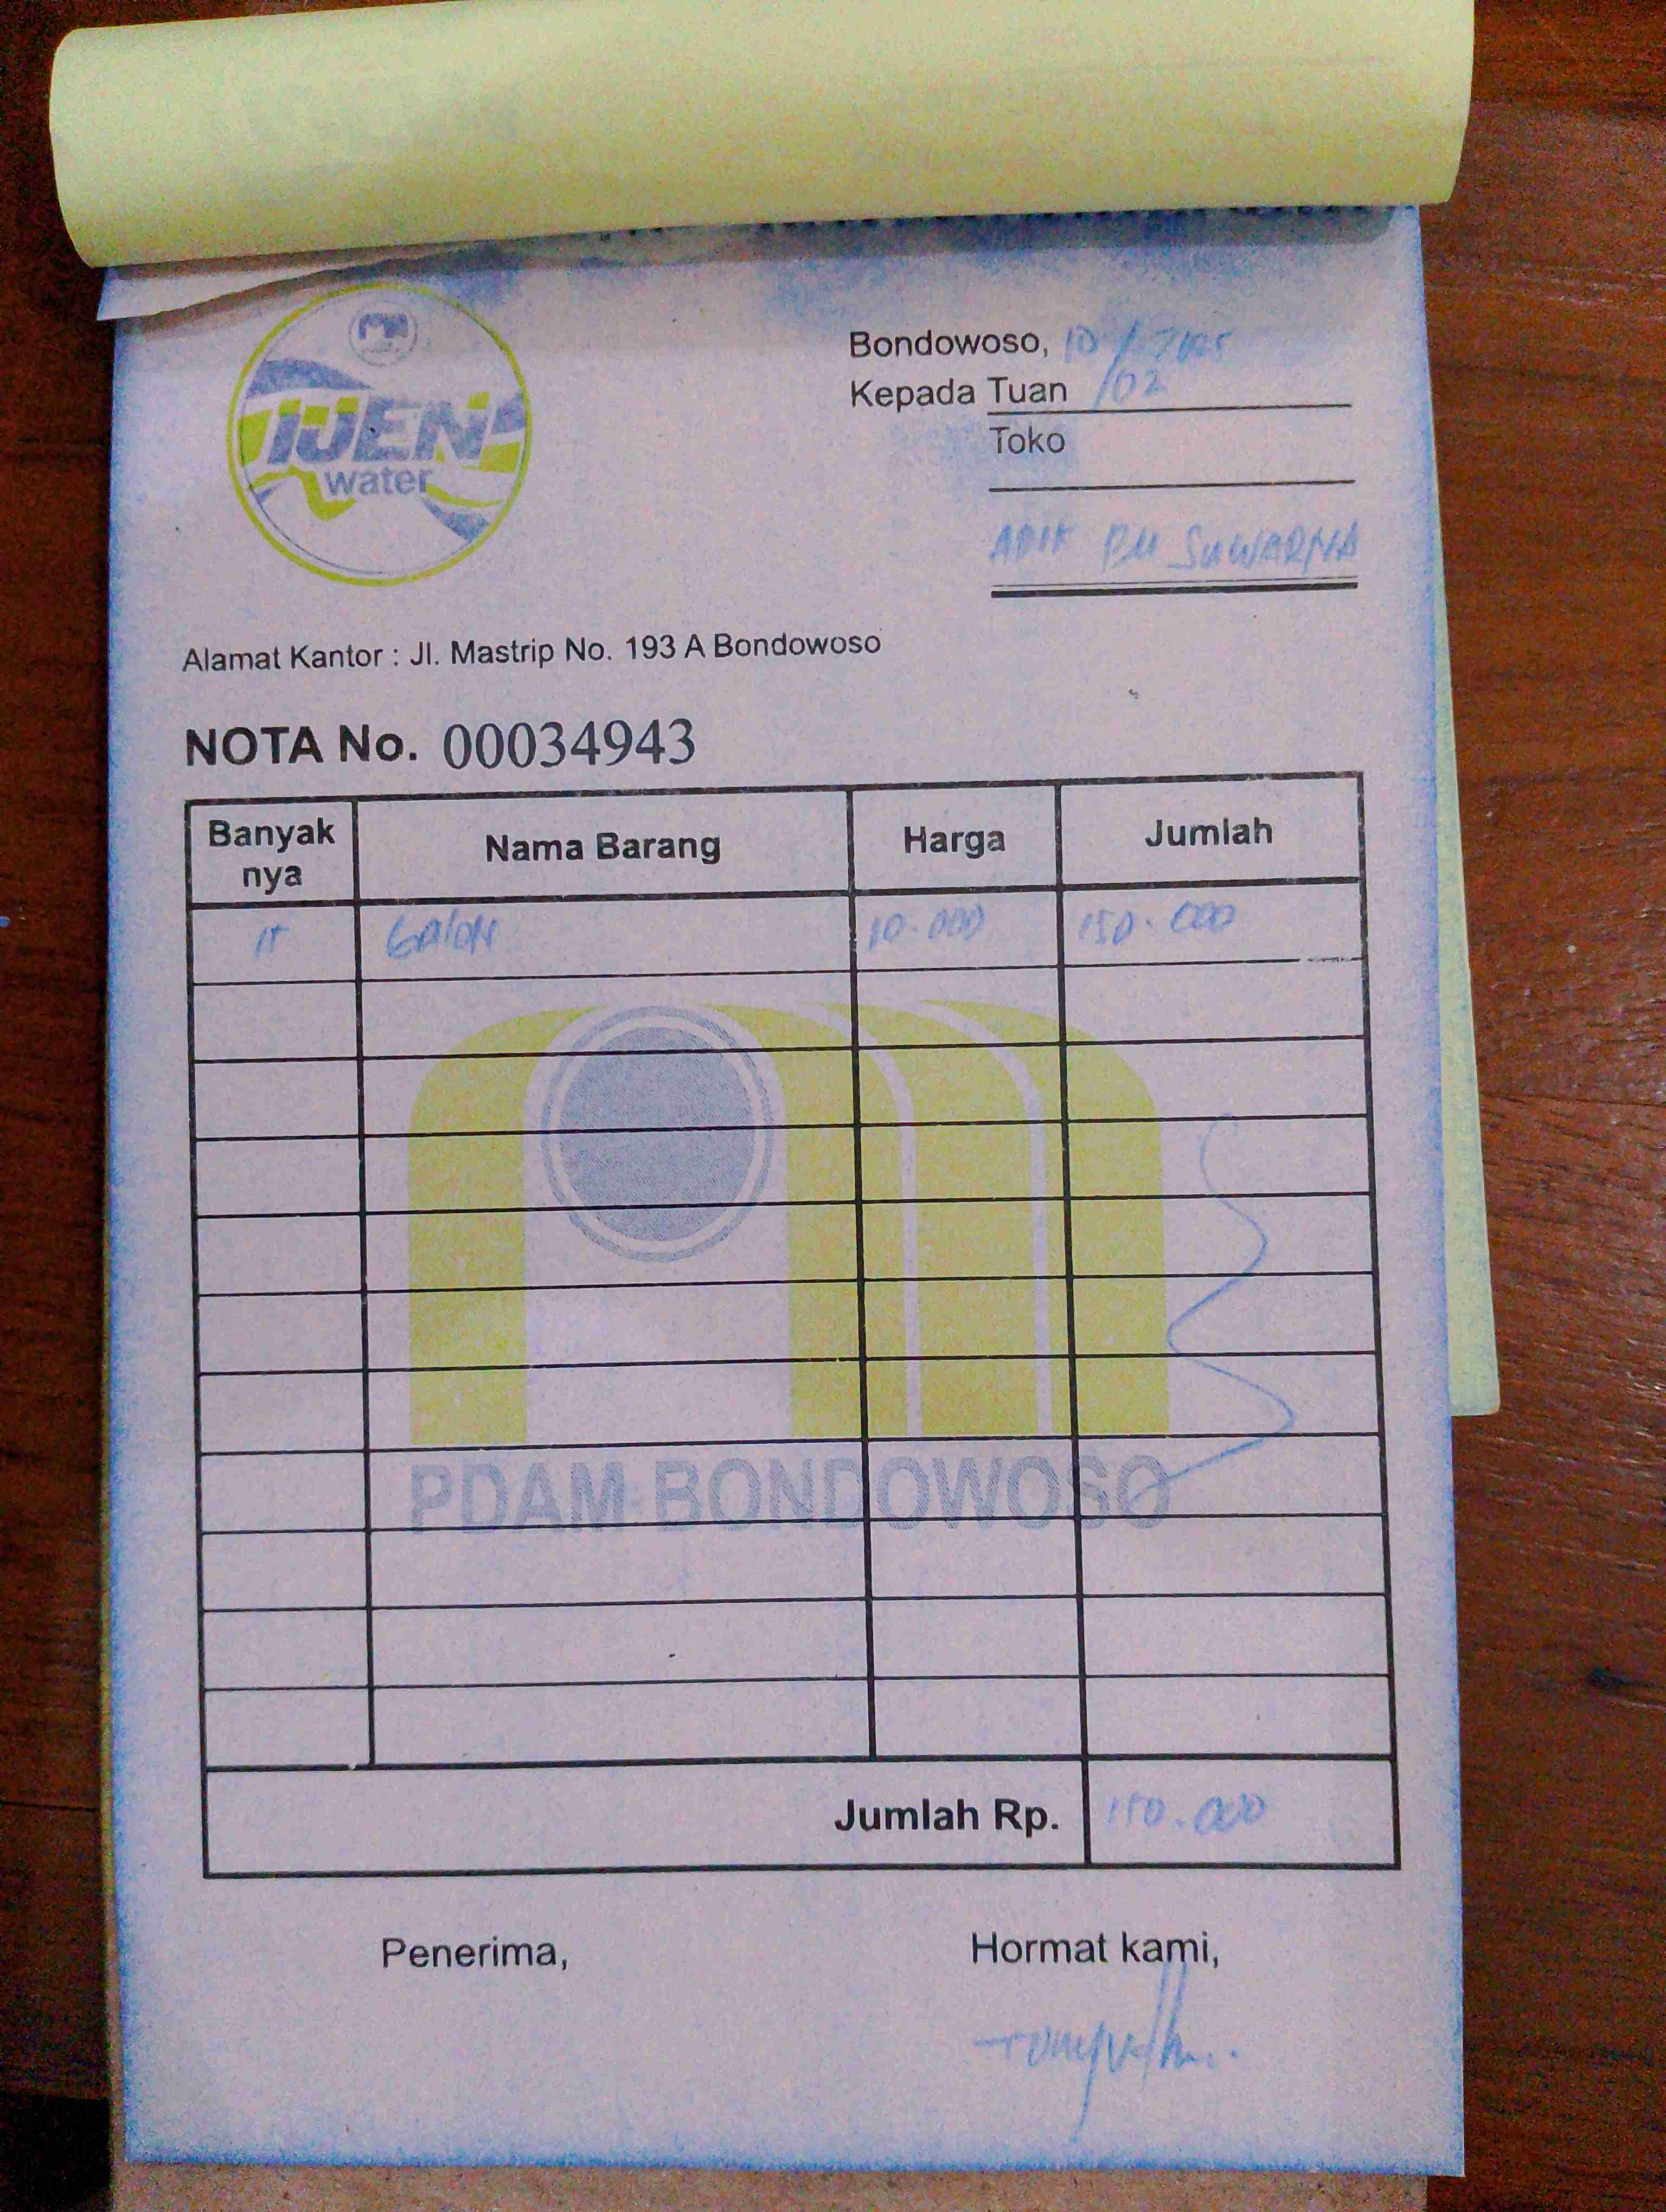 IJEN
water
Bondowoso, 10/02/2025
Kepada Tuan
Toko
ADIK BU SUWARNA
Alamat Kantor : Jl. Mastrip No. 193 A Bondowoso
NOTA No. 00034943
Banyak nya Nama Barang Harga Jumlah
15 GALON 10.000 150.000
PDAM BONDOWOSO
Jumlah Rp. 150.000
Penerima, Hormat kami,